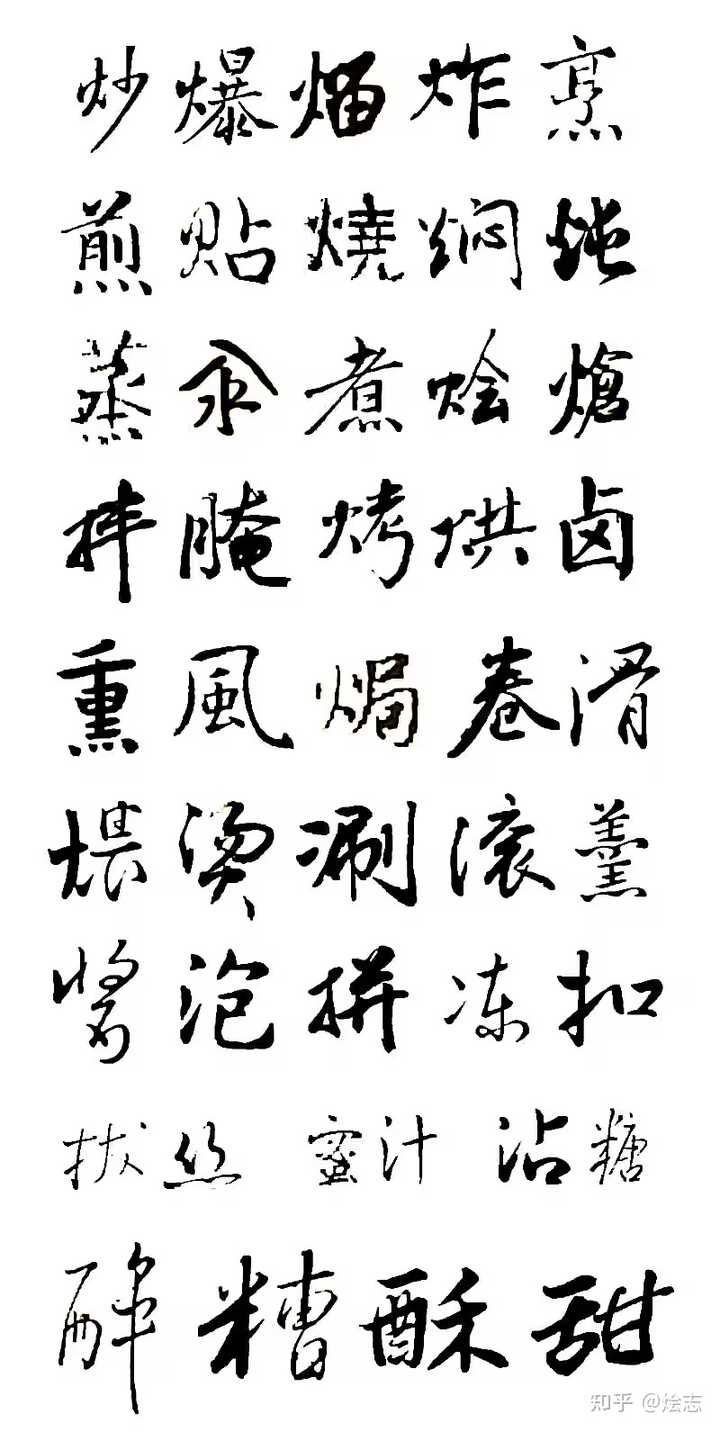 炒 爆 熘 炸 烹
煎 貼 燒 焖 炖
蒸 汆 煮 烩 熗
拌 腌 烤 烘 卤
熏 風 焗 卷 滑
煨 烫 涮 滚 羹
酱 泡 拼 冻 扣
拔丝 蜜汁 沾糖
醉 糟 酥 甜
知乎 @烩志